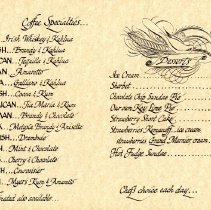 Coffee Specialties...
Irish Whiskey & Kahlua
Brandy & Kahlua
CAN... Tequila & Kahlua
AN... Amaretto
Galliano & Kahlua
SH... Cocoa & Rum
ICAN... Tia Maria & Rum
Brandy & Chocolate
Metaxa Brandy & Anisette
Drambuie
Mint & Chocolate
Cherry & Chocolate
Cointreau
Myers Rum & Amaretto
also available...
Desserts
Ice Cream
Sherbet
Chocolate Chip Sundae Pie
Our own Key Lime Pie
Strawberry Cheese Cake
Strawberries Romanoff... ice cream
strawberries Grand Marnier cream
Hot Fudge Sundae
Chef's choice each day...